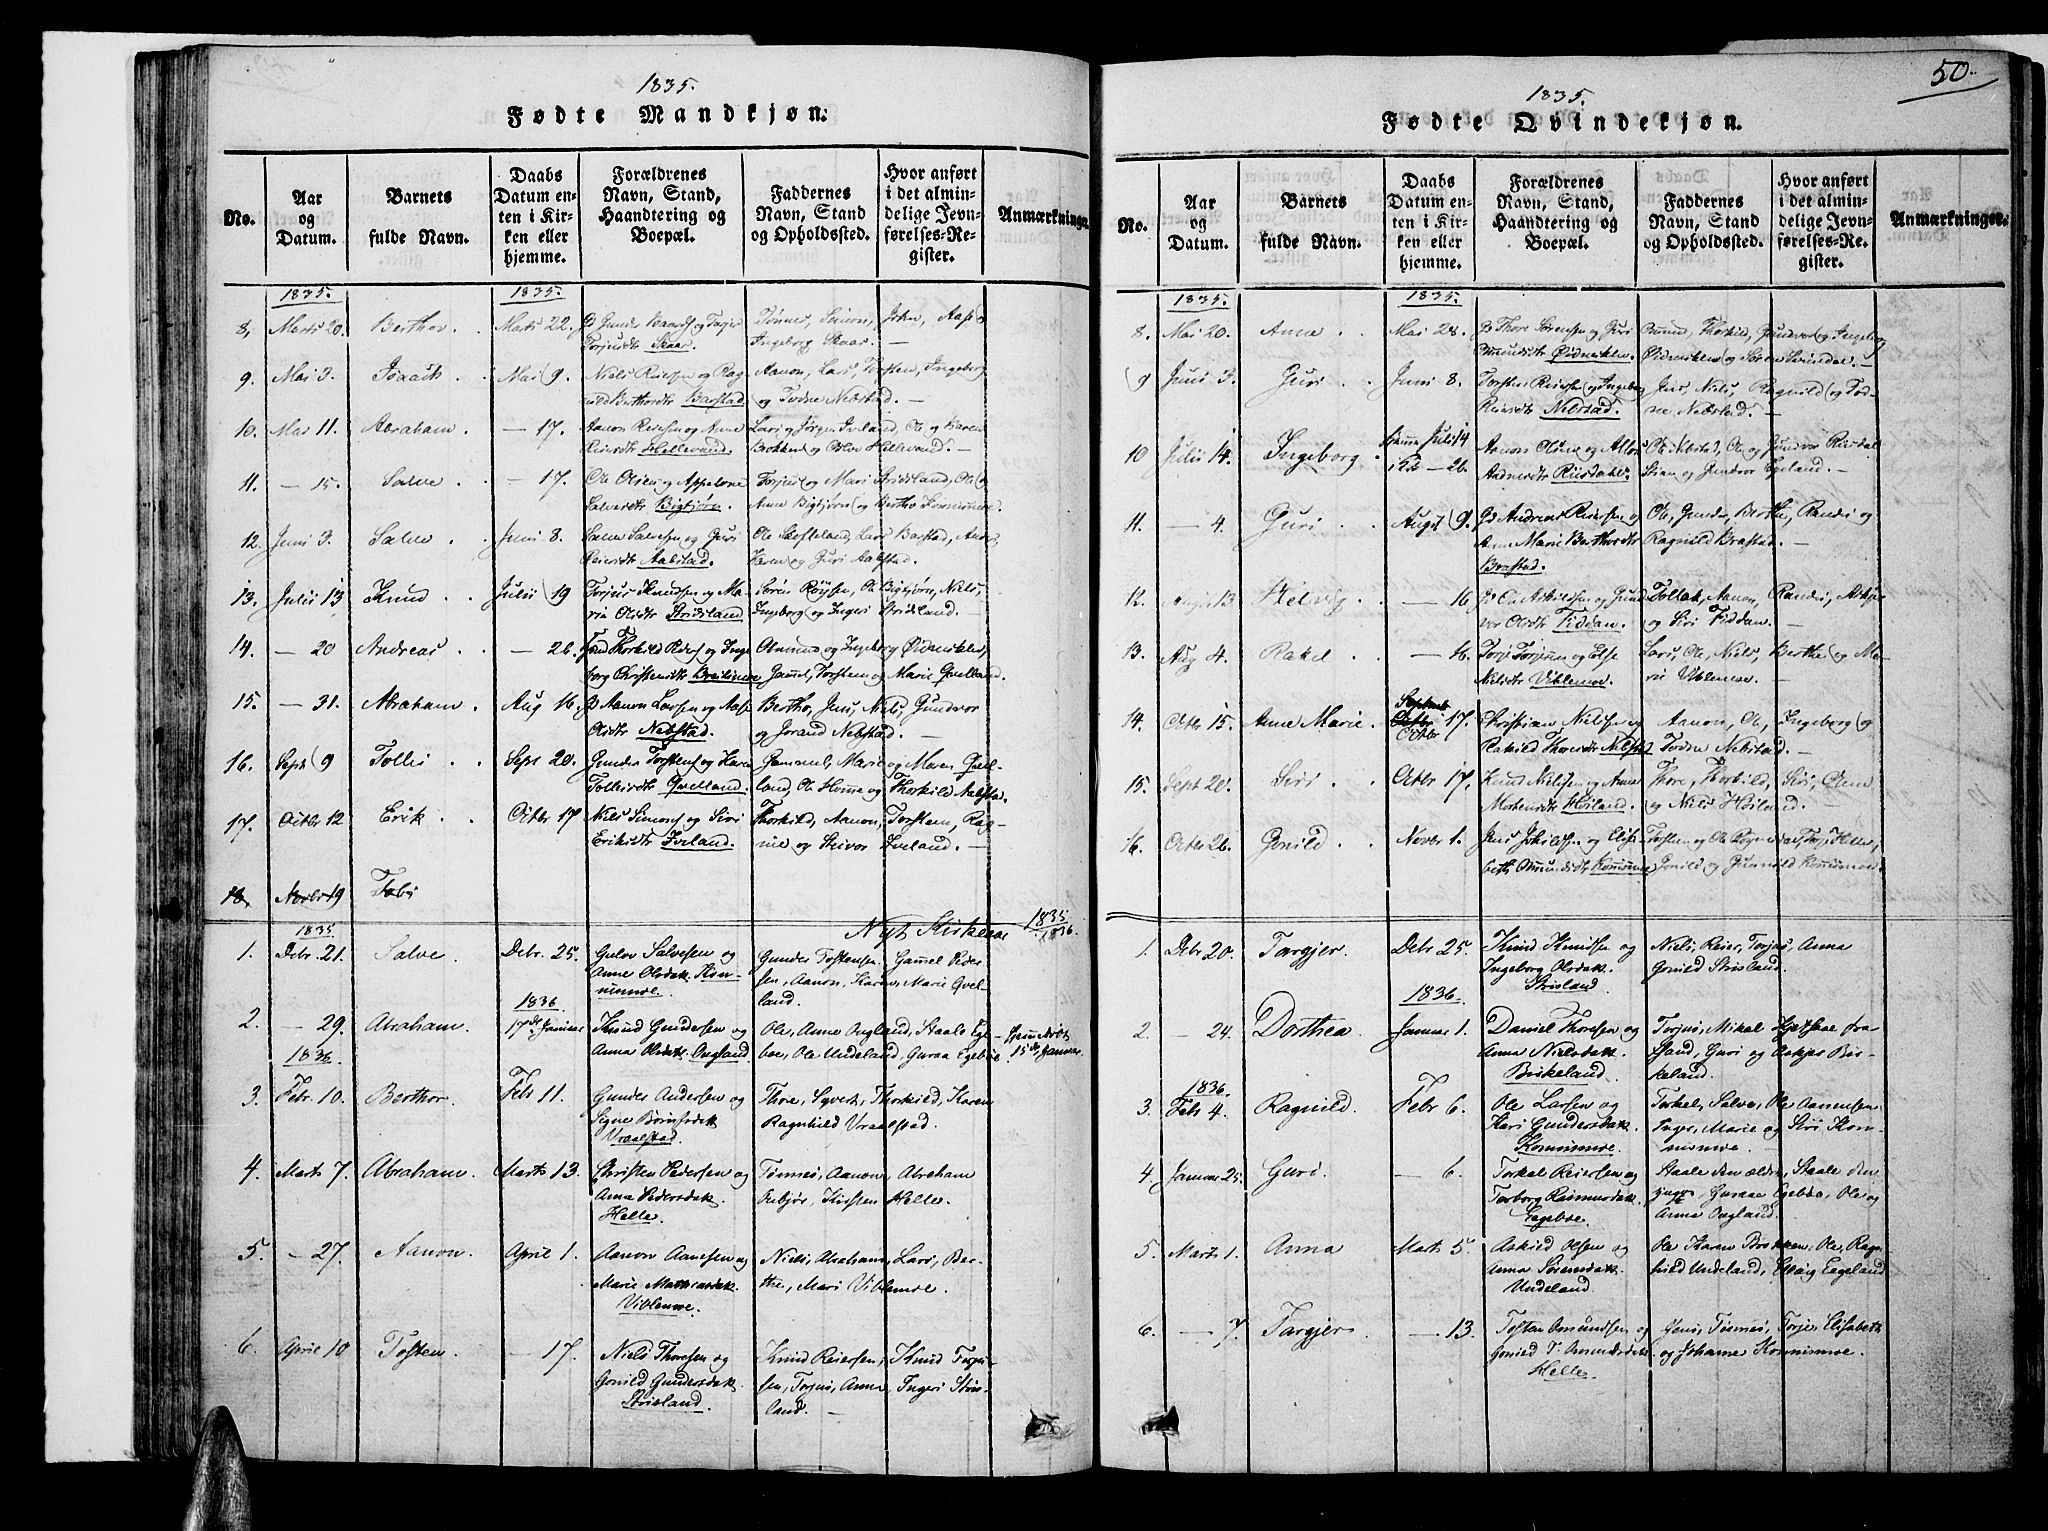 1835.
Fødte Mandkjøn.
No.
Aar
og
Datum.
Barnets
fulde Navn.
Daabs
Datum en-
ten i Kir-
ken eller
hjemme.
Forældrenes
Navn, Stand,
Haandtering og
Boepæl.
Faddernes
Navn, Stand
og Opholdssted.
Hvor anført
i det almin-
delige Jevn-
førelses-Re-
gister.
Anmærkninger.
1835. 1835.
8, Marts 20. Berthov. Marts 22. Gunder og
Torjusdtr Skaar.
Tønnes, Simon, John, Aase
Ingeborg Skaar. —
9. Mai 3. Isaach Mai 9. Niels Reiersen og Rag-
nild Berthorsdtr Bastad.
Aanon, Lars, Torsten, Ingeborg
og Todne Nebstad. —
10. Mai 11. Abraham — 17. Aanon Reiersen og Anne
Reiersdtr Hellevand.
Lars og Jørgen Iveland, Ole og Karen
Brokken og Hellevand. —
11. — 15. Salve — 17. Ole Olsen og Appelone
Salvesdtr Bigtjørn.
Torjus og Mari Strisland, Ole og
Anne Bigtjørn og Berthe Komminmoe.
12. Juni 3. Salve Juni 8. Salve Salvesen og Guri
Reiersdtr Aabstad.
Ole Lars Bastad, 
Karen og Guri Aabstad.
13. Julii 13 Knud Julii 19 Torjus Knudsen og Ma-
ria Olsdtr Strisland.
Søren Røysen, Ole Bigtjørn, Niels,
Ingeborg og Inger Strisland. —
14. — 20 Andreas — 26. Thorkild Peders og Inge
borg Christensdtr
Omund og Ingeborg
Gamel, Torsten og Marie Qvelland.
15. — 31. Abraham. Aug 16. Aanon Larsen og Aase
Olsdtr Nebstad.
Bertho, Jens, Niels, Gundvor
og Jorand Nebstad. —
16. Sept 9 Tollis Sept 20. Gunder Torstens og Karen
Tollisdtr Qvelland.
Gammel, Marie og Maren Qvel-
land, Ole Homme og Thorkild Aabstad.
17. Octbr 12 Erik Octbr 17 Niels Simons og Siri
Eriksdtr Iveland.
Thorkild, Aanon, Torsten, Rag-
nie og Steivor Iveland. —
18, Novbr 19 Tobi
Nyt Kirkeaar 1835/1836.
1835
1. Debr. 21. Salve. Debr. 25. Gulov Salvesen og
Anne Olsdatt. Kom-
minmoe.
Gunder Tostensen. Gamel Peder
sen, Aanon, Karen, Marie Qvel-
land.
1836
2. — 29. Abraham. 17de Januar Knud Gundersen og
Anna Olsdatt. Ougland.
Ole, Anne Ougland, Staale Ege-
boe, Ole Undeland, Guraa Egeboe
hjemmedøbt
15de Januar.
1836.
3. Febr. 10. Berthor. Feb 11. Gunder Andersen og
Signe datt.
Vraalstad.
Thore, Syvert, Thorkild, Karen
Ragnhild Vraalstad.
4. Marts 7. Abraham. Marts 13. Christen Pedersen og
Anna Pedersdatt.
Helle.
Tønnes, Aanon, Abraham
Aubjør, Kirsten Helle.
5. — 27. Aanon. April 1. Aanon Aanesen og
Marie datt.
Viblemoe.
Niels, Abraham, Lars, Ber-
the, Mari Viblemoe.
6. April 10 Tosten. — 17. Niels Thoresen og
Gonild Gundersdatt.
Strisland.
Knud Reiersen, Knud Torju-
sen, Torjus, Anna, Ingeri Stris-
land. —
50.
1835.
Fødte Qvindekjøn.
No.
Aar
og
Datum.
Barnets
fulde Navn.
Daabs
Datum en-
ten i Kir-
ken eller
hjemme.
Forældrenes
Navn, Stand,
Haandtering og
Boepæl.
Faddernes
Navn, Stand
og Opholdssted.
Hvor anført
i det almin-
delige Jevn-
førelses-Re-
gister.
Anmærkninger.
1835. 1835.
8. Mai 20. Anne Mai 28. Thore Sørensen og Guri
Omundsdtr
Omund, Thorkild, Gundvor og Ingeborg
og Søren
9 Juni 3. Guri Juni 8. Torsten Reiersen og Ingeborg
Reiersdtr Nebstad.
Jens, Niels, Ragnild og Tod-
ne Nebstad. —
10 Julii 14. Ingeborg Hjemme Julii 14
— 26. Aanon Olsen og
Aadnesdtr Riisdahl.
Ole Nebstad, Ole og Gundvor Riisdal
Stian og Gundvor Egeland.
11. — 4. Guri August 9. Andreas Reiersen og
Anne Marie Berthorsdtr
Brastad.
Ole, Gunder, Berthe, Randi og
Ragnild Brastad.
12. August 13 Helvig — 16 Ole Askildsen og Gund
vor Olsdtr Fiddan.
Tollak, Aanon, Randi,
og Siri Fiddan.
13. Aug 4. Rakel — 16. Torje Torjesen og Else
Nielsdtr Viblemoe.
Lars, Ole, Niels, Berthe og Ma-
rie Viblemoe.
14. Octbr 15. Anne Marie. Septemb
Octbr 17. Christian Nielsen og
Rakild Thoresdtr Nebstad
Aanon, Ole, Ingeborg og
Todne Nebstad.
15. Sept 20. Siri Octbr 17. Knud Nielsen og Anne
Mortensdtr Høiland.
Thore, Thorkild, Siri,
og Niels Høiland.
16. Octbr 26. Gonild Novbr 1. Jens og Elisa
beth Omundsdtr Kominmoe
Torsten og Ole Torje Helle,
Gonild og Gunnild Kominmoe.
1. Debr 20. Targjer. Debr 25. Knud Knudsen og
Ingeborg Olsdatt.
Strisland
Niels, Reier, Torjus, Anna
Gonild Strisland.
1836.
2. — 24. Dorthea Januar 1. Daniel Thoresen og
Anna Nielsdatt.
Birkeland
Torjus, Mikal
Guri og Askjer Bir-
keland.
1836
3. Feb 4. Ragnild. Febr 6. Ole Larsen og
Kari Gundersdatt.
Kominmoe.
Torkel, Salve, Ole Aanensen
Inger, Marie og Siri Kom-
minmoe —
4. Januar 25. Guri — 6. Torkel Reiersen og
Torborg Rasmusdatt.
Egeboe.
Staale den ældre, Staale den
yngre, Guraae Egeboe, Ole og
Anna Ougland.
5. Marts 1. Anna Marts 5. Askild Olsen og
Anna Sørensdatt.
Undeland
Ole Karen Brokken, Ole, Rag-
hild Undeland, Egeland
6. — 7. Targjer — 13. Tosten Omundsen og
Gonild
Helle.
Jens, Tønnes, Torjer, Elisabeth
og Johanne Kominmoe.